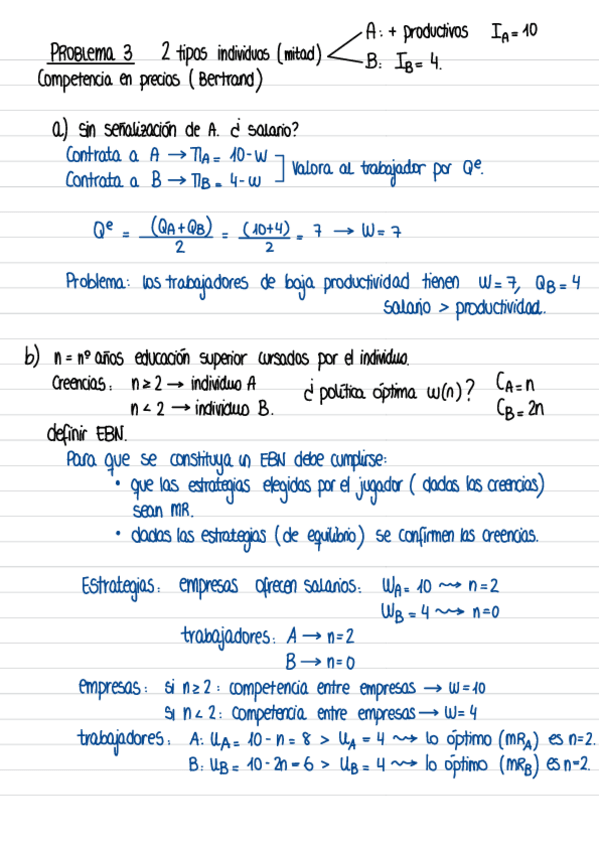 PROBLEMA 3 2 tipos individuos (mitad) A: + productivos I_A = 10
B: I_B = 4.
Competencia en precios (Bertrand)
a) sin señalización de A. ¿ salario?
Contrata a A → Π_A = 10 - w
Contrata a B → Π_B = 4 - w ] Valora al trabajador por Q^e.
Q^e = (Q_A + Q_B) / 2 = (10+4) / 2 = 7 → W = 7
Problema: los trabajadores de baja productividad tienen W = 7, Q_B = 4
salario > productividad.
b) n = nº años educación superior cursados por el individuo.
Creencias: n ≥ 2 → individuo A ¿ política óptima w(n)? C_A = n
n < 2 → individuo B. C_B = 2n
definir EBN.
Para que se constituya un EBN debe cumplirse:
• que las estrategias elegidas por el jugador ( dadas las creencias)
sean MR.
• dadas las estrategias (de equilibrio) se confirmen las creencias.
Estrategias: empresas ofrecen salarios: W_A = 10 ⇝ n = 2
W_B = 4 ⇝ n = 0
trabajadores: A → n = 2
B → n = 0
empresas: si n ≥ 2 : competencia entre empresas → W = 10
si n < 2: competencia entre empresas → W = 4
trabajadores: A: U_A = 10 - n = 8 > U_A = 4 ⇝ lo óptimo (MR_A) es n = 2.
B: U_B = 10 - 2n = 6 > U_B = 4 ⇝ lo óptimo (MR_B) es n = 2.